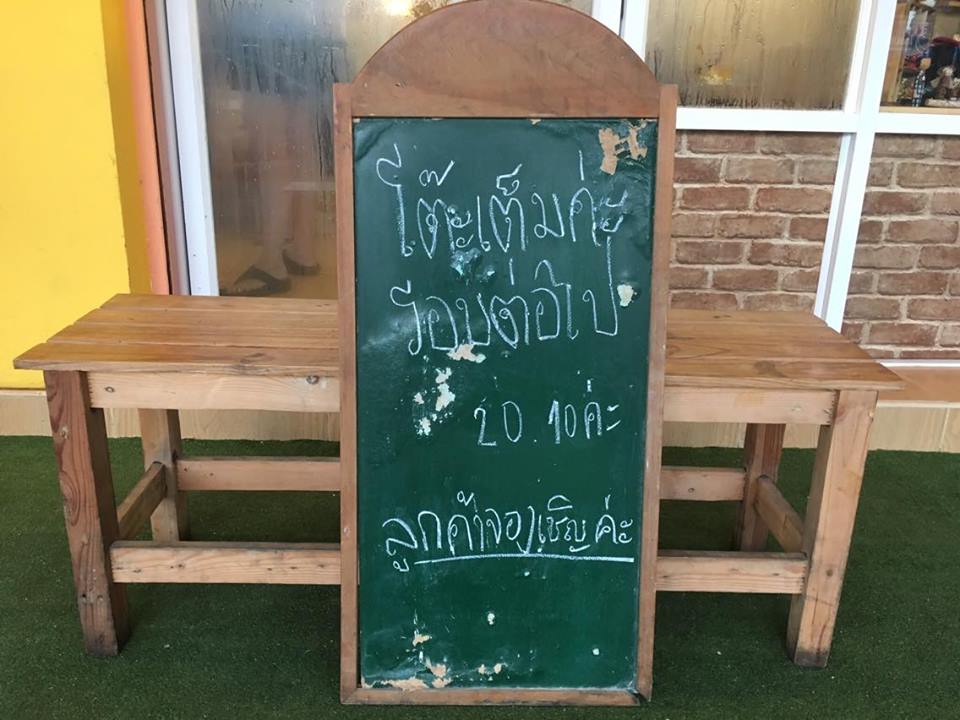 โต๊ะเต็มค่ะ
รอบต่อไป
20.10ค่ะ
ลูกค้าจองเชิญค่ะ